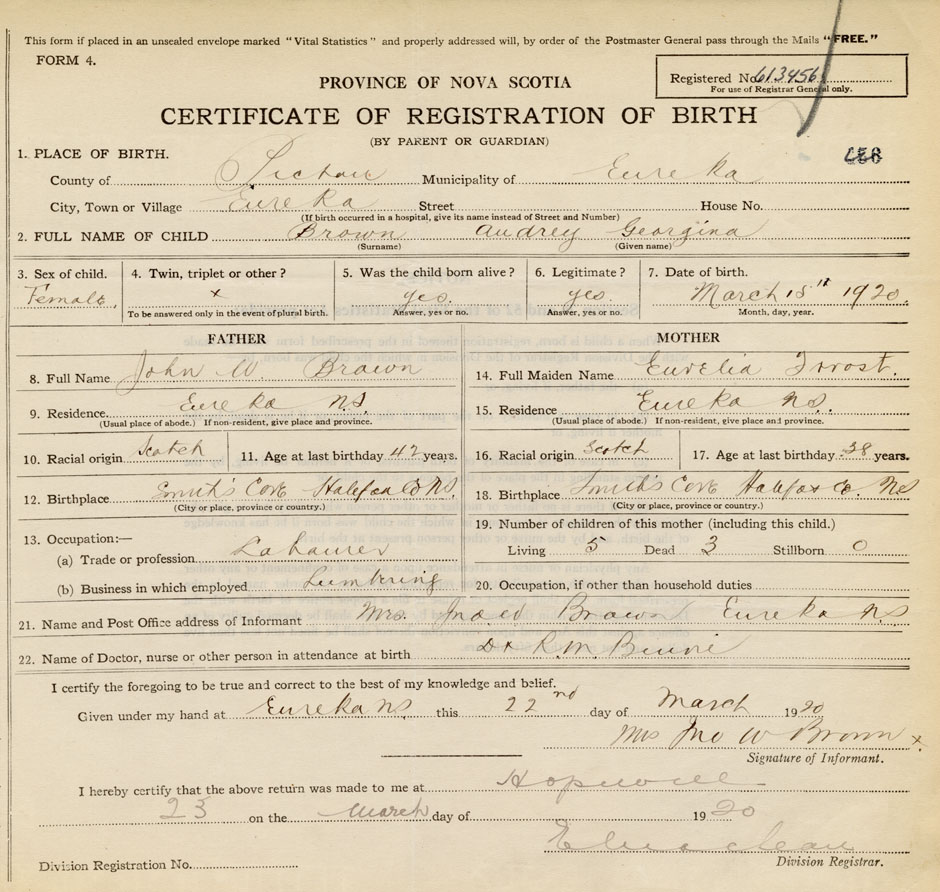 This form if placed in an unsealed envelope marked "Vital Statistics" and properly addressed will, by order of the Postmaster General pass through the Mails "FREE."
FORM 4.
Registered No. 613456
For use of Registrar General only.
PROVINCE OF NOVA SCOTIA
CERTIFICATE OF REGISTRATION OF BIRTH
(BY PARENT OR GUARDIAN)
1. PLACE OF BIRTH.
County of Pictou Municipality of Eureka
City, Town or Village Eureka Street House No.
(If birth occurred in a hospital, give its name instead of Street and Number)
2. FULL NAME OF CHILD Brown Audrey Georgina
(Surname) (Given name)
3. Sex of child. 4. Twin, triplet or other? 5. Was the child born alive? 6. Legitimate? 7. Date of birth.
Female. x yes. yes. March 15th 1920.
To be answered only in the event of plural birth. Answer, yes or no. Answer, yes or no. Month, day, year.
FATHER MOTHER
8. Full Name John W Brown
14. Full Maiden Name Eurelia
9. Residence Eureka N.S.
15. Residence Eureka N.S.
(Usual place of abode.) If non-resident, give place and province.
(Usual place of abode.) If non-resident, give place and province.
10. Racial origin Scotch 11. Age at last birthday 42 years.
16. Racial origin Scotch 17. Age at last birthday 38 years.
12. Birthplace Smith's Cove Halifax Co NS.
18. Birthplace Smith's Cove Halifax Co. NS
(City or place, province or country.)
(City or place, province or country.)
13. Occupation:—
(a) Trade or profession
(b) Business in which employed Lumbering
19. Number of children of this mother (including this child.)
Living 5 Dead 3 Stillborn 0
20. Occupation, if other than household duties
21. Name and Post Office address of Informant Mrs. Jno W Brown Eureka NS
22. Name of Doctor, nurse or other person in attendance at birth Dr R. M.
I certify the foregoing to be true and correct to the best of my knowledge and belief.
Given under my hand at Eureka NS this 22nd day of March 1920
Mrs Jno W Brown x
Signature of Informant.
I hereby certify that the above return was made to me at Hopewell
23 on the March day of 1920
Division Registration No. Division Registrar.